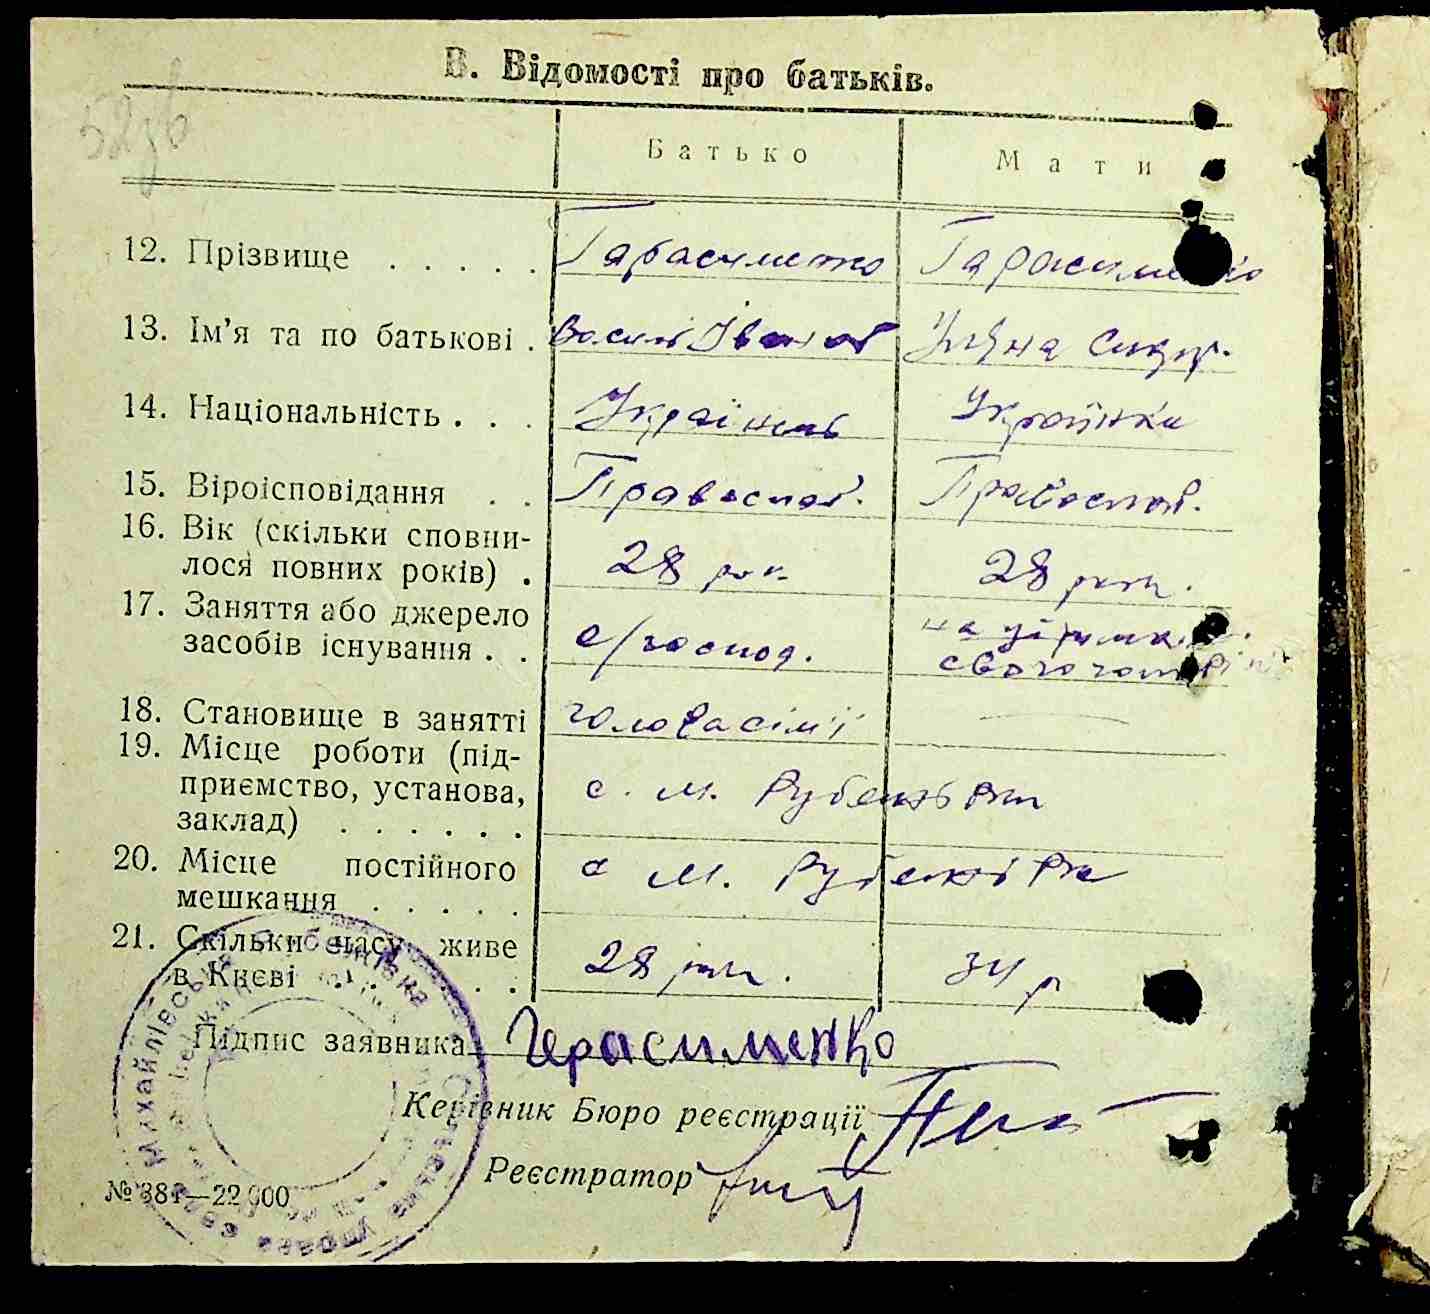 В. Відомості про батьків.
Батько Мати
12. Прізвище . . . . . Гарасименко Гарасименко
13. Ім'я та по батькові . Василь Іванов Уляна Сидор.
14. Національність . . . Українець Українка
15. Віроісповідання . . Православ. Православ.
16. Вік (скільки сповни-
лося повних років) . 28 рок. 28 рок.
17. Заняття або джерело на утриман.
засобів існування . . с/господ. свого чоловіка
18. Становище в занятті голова сім'ї —
19. Місце роботи (під-
приємство, установа, с. М. Рубежівка
заклад) . . . . . .
20. Місце постійного с М. Рубежівка
мешкання . . . . .
21. Скільки часу живе
в Києві . . . . . 28 рок. 34 р
Підпис заявника Герасименко
Керівник Бюро реєстрації
Реєстратор
№ 381—22.000